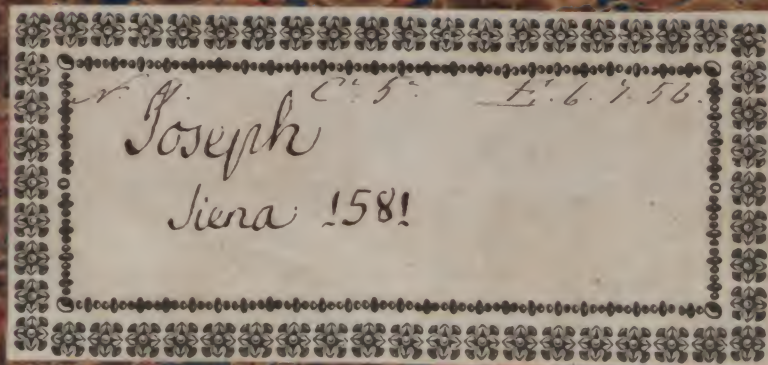 N. 9. C. 5. E. 6. 7. 56.
Joseph
Siena 1581